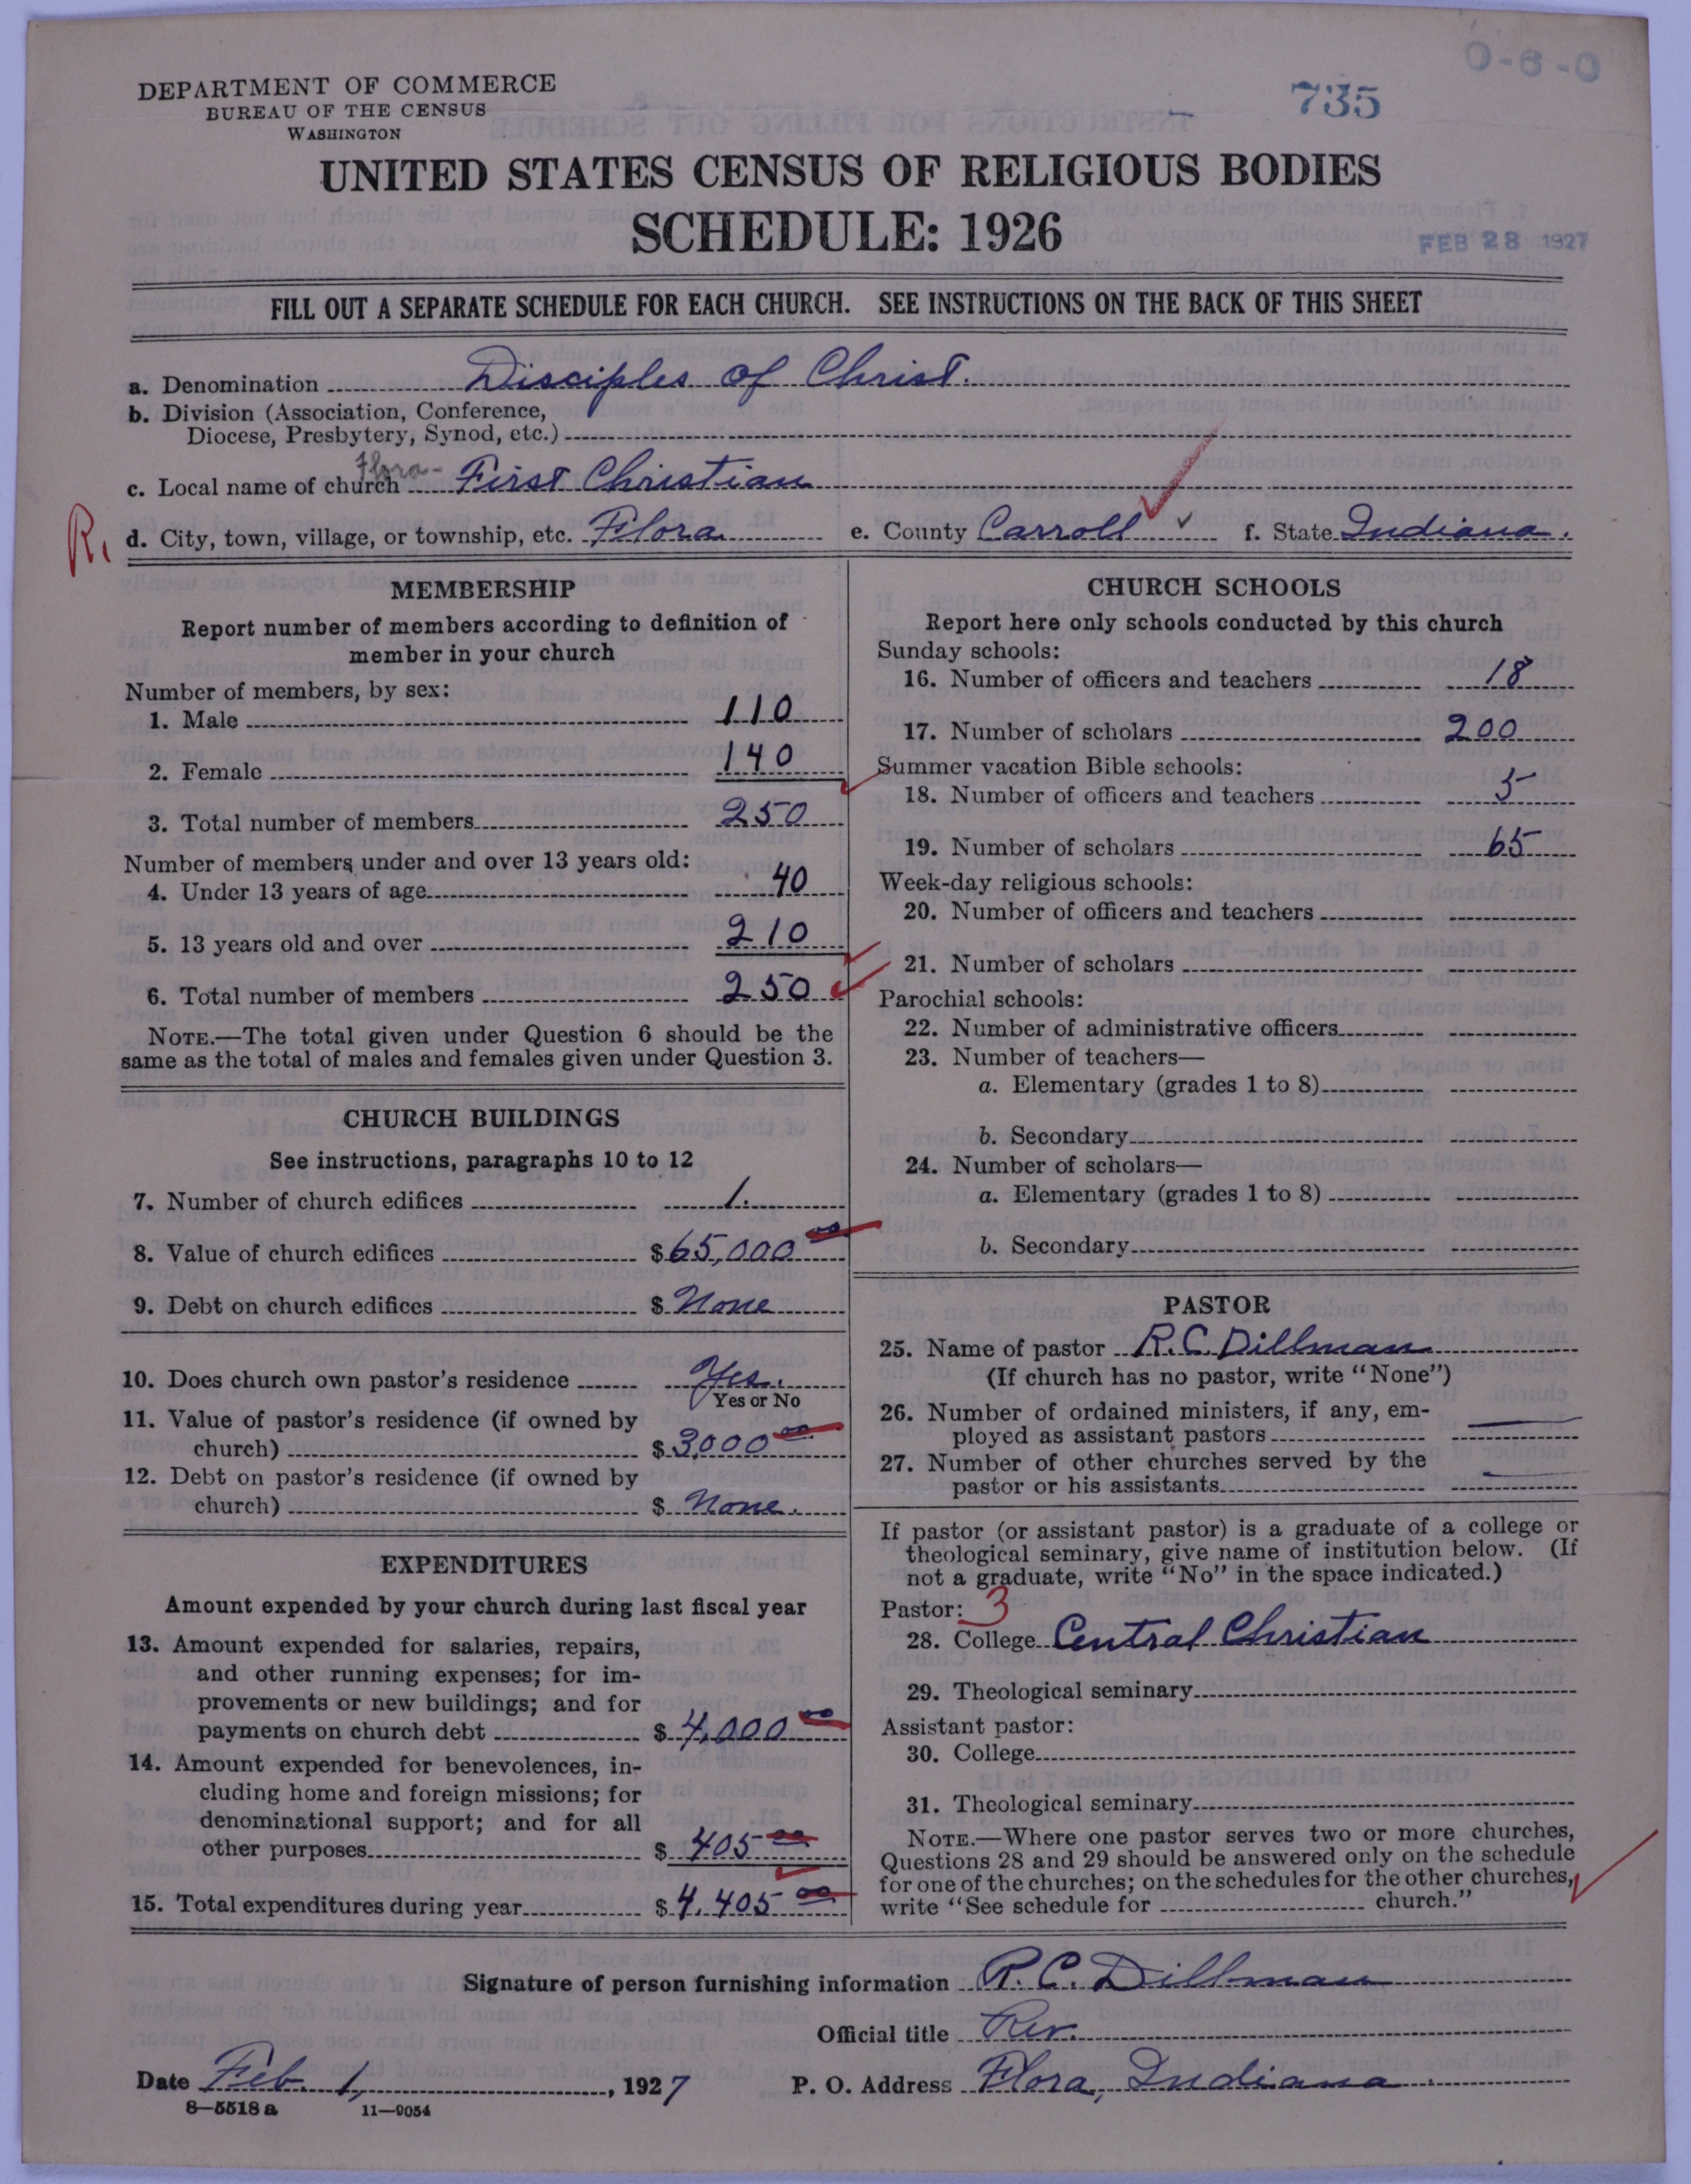 DEPARTMENT OF COMMERCE
BUREAU OF THE CENSUS
WASHINGTON
735
0-6-0
UNITED STATES CENSUS OF RELIGIOUS BODIES
SCHEDULE: 1926
FEB 28 1927
FILL OUT A SEPARATE SCHEDULE FOR EACH CHURCH. SEE INSTRUCTIONS ON THE BACK OF THIS SHEET
a. Denomination Disciples of Christ.
b. Division (Association, Conference,
Diocese, Presbytery, Synod, etc.)
c. Local name of church Flora - First Christian
R. d. City, town, village, or township, etc. Flora e. County Carroll f. State Indiana.
MEMBERSHIP
Report number of members according to definition of
member in your church
Number of members, by sex:
1. Male 110
2. Female 140
3. Total number of members 250
Number of members under and over 13 years old:
4. Under 13 years of age 40
5. 13 years old and over 210
6. Total number of members 250
NOTE.—The total given under Question 6 should be the
same as the total of males and females given under Question 3.
CHURCH BUILDINGS
See instructions, paragraphs 10 to 12
7. Number of church edifices 1.
8. Value of church edifices $ 65,000 00
9. Debt on church edifices $ None
10. Does church own pastor's residence Yes.
Yes or No
11. Value of pastor's residence (if owned by
church) $ 3,000 00
12. Debt on pastor's residence (if owned by
church) $ None.
EXPENDITURES
Amount expended by your church during last fiscal year
13. Amount expended for salaries, repairs,
and other running expenses; for im-
provements or new buildings; and for
payments on church debt $ 4,000 00
14. Amount expended for benevolences, in-
cluding home and foreign missions; for
denominational support; and for all
other purposes $ 405 00
15. Total expenditures during year $ 4,405 00
CHURCH SCHOOLS
Report here only schools conducted by this church
Sunday schools:
16. Number of officers and teachers 18
17. Number of scholars 200
Summer vacation Bible schools:
18. Number of officers and teachers 5
19. Number of scholars 65
Week-day religious schools:
20. Number of officers and teachers
21. Number of scholars
Parochial schools:
22. Number of administrative officers
23. Number of teachers—
a. Elementary (grades 1 to 8)
b. Secondary
24. Number of scholars—
a. Elementary (grades 1 to 8)
b. Secondary
PASTOR
25. Name of pastor R. C. Dillman
(If church has no pastor, write "None")
26. Number of ordained ministers, if any, em-
ployed as assistant pastors —
27. Number of other churches served by the
pastor or his assistants —
If pastor (or assistant pastor) is a graduate of a college or
theological seminary, give name of institution below. (If
not a graduate, write "No" in the space indicated.)
Pastor: 3
28. College Central Christian
29. Theological seminary
Assistant pastor:
30. College
31. Theological seminary
NOTE.—Where one pastor serves two or more churches,
Questions 28 and 29 should be answered only on the schedule
for one of the churches; on the schedules for the other churches,
write "See schedule for church."
Signature of person furnishing information R. C. Dillman
Official title Rev.
Date Feb. 1, 1927 P. O. Address Flora, Indiana.
8—5518 a 11—9054